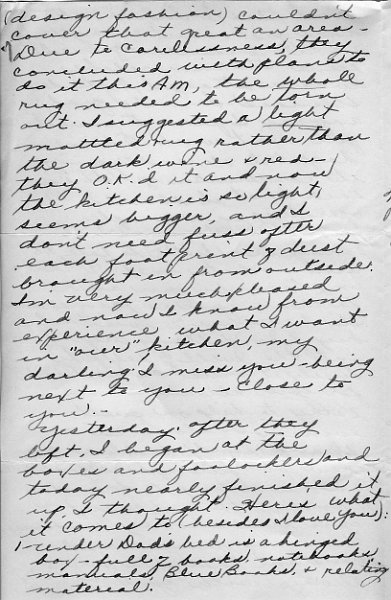 (design fashion) couldn't
cover that great an area -
Due to carelessness, they
concluded with plans to
do it this AM, the whole
rug needed to be torn
out. I suggested a light
mottled rug rather than
the dark wine & red -
they O.K.d it and now
the kitchen is so light,
seems bigger, and I
don't need fuss after
each footprint & dust
brought in from outside.
I'm very much pleased
and now I know from
experience what I want
in "our" kitchen, my
darling. I miss you - being
next to you - close to
you. -
Yesterday after they
left, I began at the
boxes and footlockers and
today nearly finished it
up, I thought. Here's what
it comes to (besides I love you):
1 - under Dad's bed is a hinged
box - full of books, notebooks,
manuals, Blue Books, & relating
material.